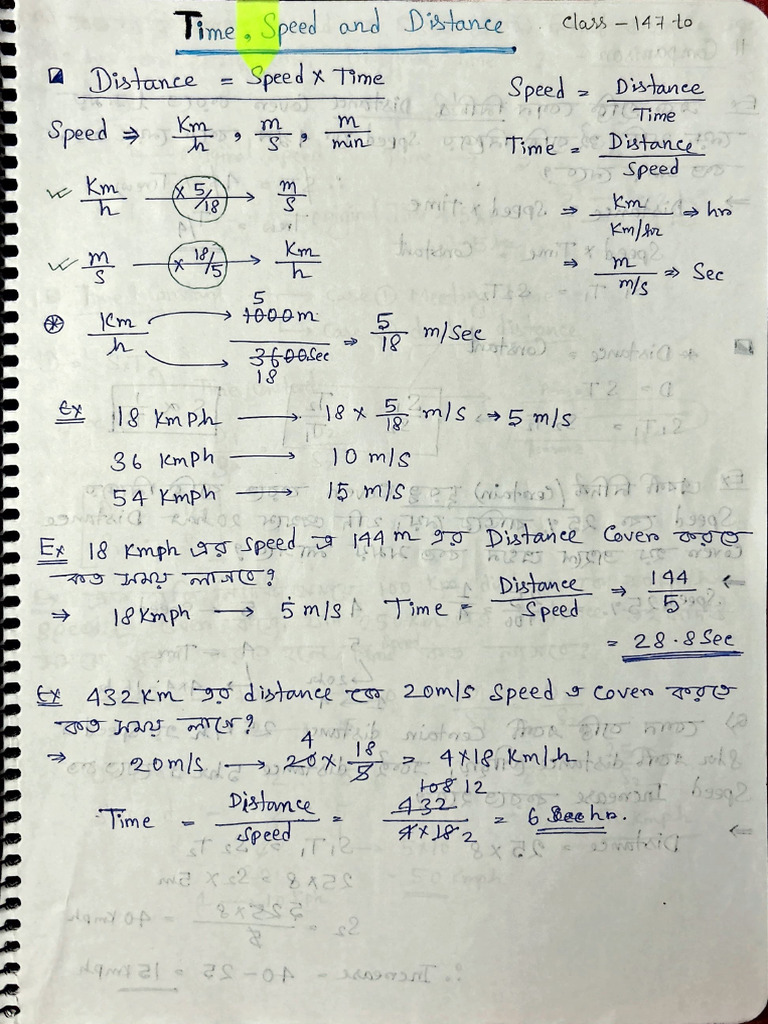 Time, Speed and Distance Class - 147 to
Distance = Speed × Time
Speed = Distance / Time
Speed ⇒ Km/h, m/s, m/min
Time = Distance / Speed
Km/h × 5/18 → m/s
⇒ Km / Km/hr ⇒ hr
m/s × 18/5 → Km/h
⇒ m / m/s ⇒ Sec
Km/h → 1000m 5 / 3600sec 18 ⇒ 5/18 m/sec
Ex 18 KmPh → 18 × 5/18 m/s → 5 m/s
36 KmPh → 10 m/s
54 KmPh → 15 m/s
Ex 18 Kmph এর speed এ 144 m এর Distance Cover করতে
কত সময় লাগবে?
⇒ 18 Kmph → 5 m/s Time = Distance / Speed ⇒ 144/5
= 28.8 Sec
Ex 432 Km এর distance কে 20m/s Speed এ Cover করতে
কত সময় লাগে?
⇒ 20m/s → 4 20 × 18/5 = 4×18 Km/h
Time = Distance / Speed = 108 12 432 / 4×18 2 = 6 hr.